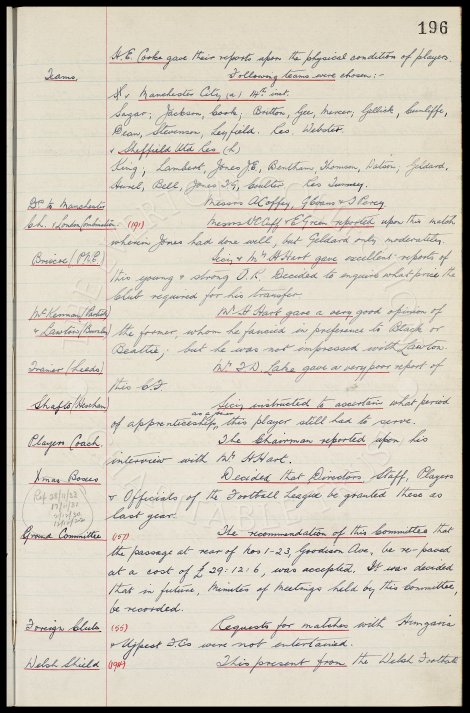 196
H.E. Cooke gave their reports upon the physical condition of players.
Teams. Following teams were chosen:-
X v. Manchester City (a) 14th inst.
Sagar; Jackson, Cook; Britton, Gee, Mercer; Gillick, Cunliffe,
Dean, Stevenson, Leyfield. Res. Webster
v Sheffield Utd Res (h)
King; Lambert, Jones J.E, Bentham, Thomson, Watson, Geldard,
Hurel, Bell, Jones T.G, Coulter, Res
Messrs A Coffey, G Evans & J Percy
Ch. v London Combination (191) Messrs & E Green reported upon this match
wherein Jones had done well, but Geldard only moderately.
Briscoe (P.N.E.) Secy. & Mr H Hart gave excellent reports of
this young & strong O.R. Decided to enquire what price the
Club required for his transfer
Mr H Hart gave a very good opinion of
& Lawton (Burnley) the former, whom he fancied in preference to Black or
Beattie; but he was not impressed with Lawton.
(Leeds) Mr T.D. Lake gave a very poor report of
this C.F.
Secy. instructed to ascertain what period
as a joiner
of apprenticeship, this player still had to serve.
Players Coach. The Chairman reported upon his
interview with Mr H Hart.
Xmas Boxes Decided that Directors Staff, Players
& Officials of the Football League be granted these as
last year.
Ground Committee (157) The recommendation of this Committee that
the passage at rear of Nos 1-23, Goodison Ave, be re-paved
at a cost of £29:12:6, was accepted. It was decided
that in future, Minutes of Meetings held by this Committee,
be recorded.
Foreign Clubs (55) Requests for matches with Hungaria
& Ujpest F.Cs were not entertained.
Welsh Shield (194) This present from the Welsh Football